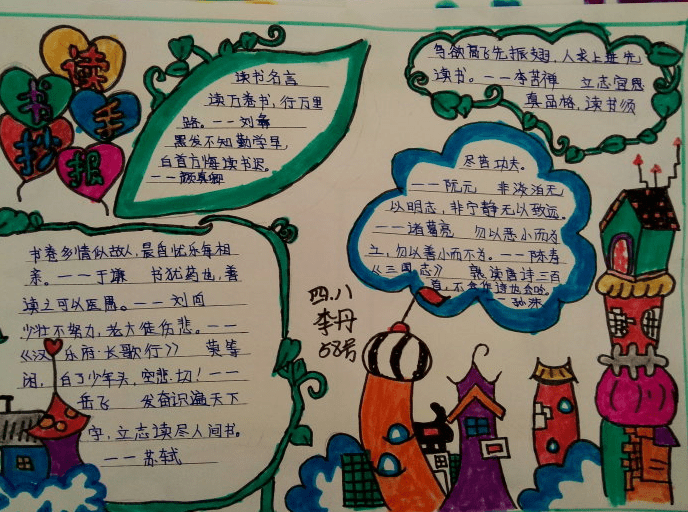 读书手抄报
读书名言
读万卷书，行万里
路。——刘彝
黑发不知勤学早，
白首方悔读书迟。
——颜真卿
鸟欲高飞先振翅，人求上进先
读书。——李苦禅　立志宜思
真品格，读书须
尽苦功夫。
——阮元　非淡泊无
以明志，非宁静无以致远。
——诸葛亮　勿以恶小而为
之，勿以善小而不为。——陈寿
《三国志》　熟读唐诗三百
首，不会作诗也会吟。
——孙洙
书卷多情似故人，晨昏忧乐每相
亲。——于谦　书犹药也，善
读之可以医愚。——刘向
少壮不努力，老大徒伤悲。——
《汉乐府·长歌行》　莫等
闲，白了少年头，空悲切！——
岳飞　发奋识遍天下
字，立志读尽人间书。
——苏轼
四.八
李丹
58号